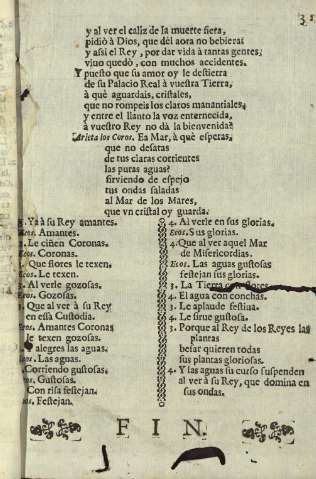 y al ver el caliz de la muerte fiera,
pidiò à Dios, que dèl aora no bebiera:
y assi el Rey, por dar vida à tantas gentes,
vivo quedò, con muchos accidentes.
Y puesto que su amor oy le destierra
de su Palacio Real à vuestra Tierra,
à què aguardais, cristales,
que no rompeis los claros manantiales,
y entre el llanto la voz enternecida,
à vuestro Rey no dà la bienvenida?
Arieta los Coros. Ea Mar, à què esperas,
que no desatas
de tus claras corrientes
las puras aguas?
sirviendo de espejo
tus ondas saladas
al Mar de los Mares,
que vn cristal oy guarda.
Ya à su Rey amantes.
Ecos. Amantes.
Le ciñen Coronas.
Ecos. Coronas.
Que flores le texen.
Ecos. Le texen.
Al verle gozosas.
Ecos. Gozosas.
Que al ver à su Rey
en essa Custodia.
Ecos. Amantes Coronas
le texen gozosas.
alegres las aguas.
Ecos. Las aguas.
Corriendo gustosas.
Ecos. Gustosas.
Con risa festejan.
Ecos. Festejan.
4. Al verle en sus glorias.
Ecos. Sus glorias.
4. Que al ver aquel Mar
de Misericordias.
Ecos. Las aguas gustosas
festejan sus glorias.
3. La Tierra con flores
4. El agua con conchas.
3. Le aplaude festina.
4. Le sirue gustosa.
3. Porque al Rey de los Reyes las
plantas
besar quieren todas
sus plantas gloriosas.
4. Y las aguas su curso suspenden
al ver à su Rey, que domina en
sus ondas.
FIN.